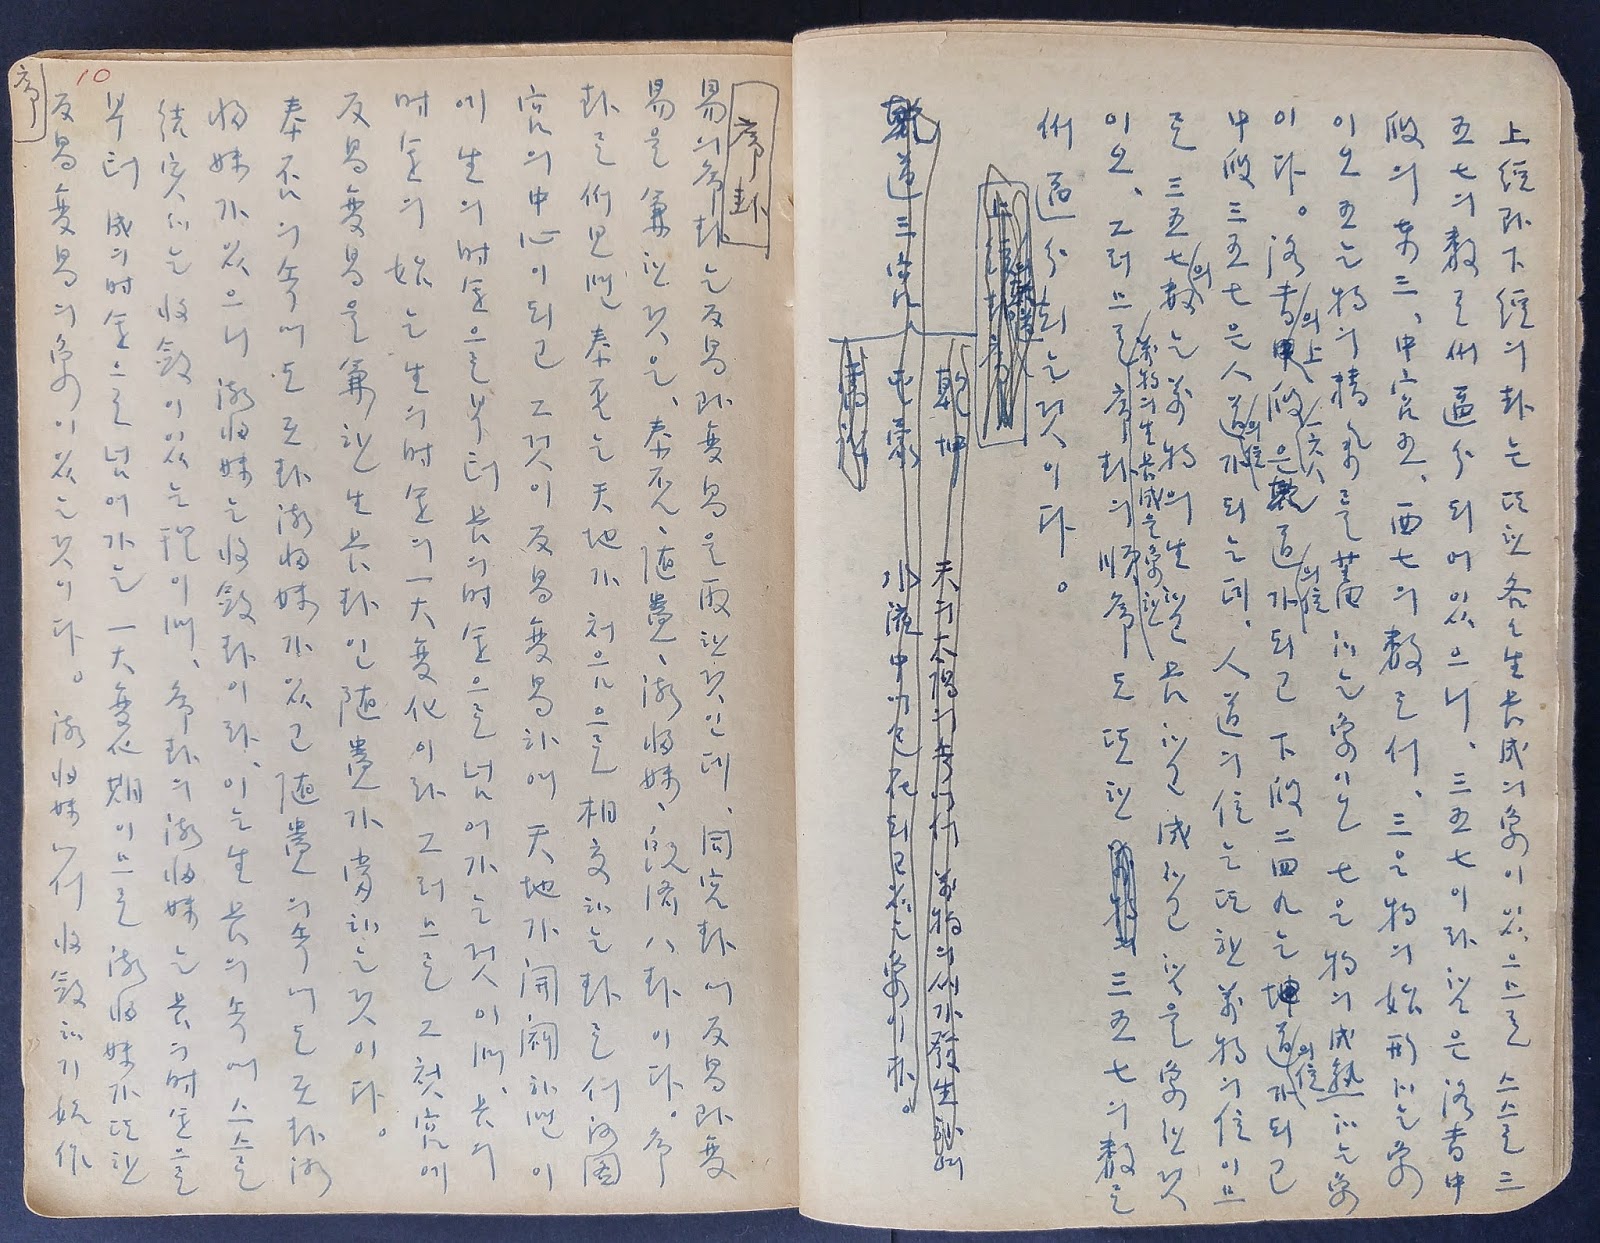 上經과下經의卦는또한各各生長成의象이있으므로스스로三
五七의數로써區分되어있으니、三五七이라한것은洛書中
段의東三、中宮五、西七의數로서、三은物의始形하는象
이오五는物의積氣를蓄하는象이오七은物의成熟하는象
이다。洛書의上段은 道의位가되고下段二四九는坤道의位가되고
中段三五七은人道의位가되는데、人道의位는또한萬物의位이므
로三五七의數는萬物의生한것長한것成한것을象한것
이오、그러므로序卦의順序도또한三五七의數로
써區分되는것이다。
乾道三宮
乾坤
屯蒙
序卦
易의序卦는反易과變易을取한것인데、同宮卦에反易과變
易을兼한것은、泰否、隨蠱、漸歸妹、旣濟八卦이다。序
卦로써보면泰否는天地가처음으로相交하는卦로서河圖
宮의中心이되고그것이反易變易하여天地가開闢하면이
에生의時運으로부터長의時運으로넘어가는것이며、長의
時運의始는生의時運의一大變化이라그러므로그첫宮에
反易變易을兼한生長卦인隨蠱가當하는것이다。
泰否의속에도또卦漸歸妹가있고隨蠱의속에도또卦漸
歸妹가있으니漸歸妹는收斂卦이라、이는生長의속에스스로
結實하는收斂이있는 이며、序卦의漸歸妹는長의時運으로
부터成의時運으로넘어가는一大變化期이므로漸歸妹가또한
反易變易의象이있는것이다。漸歸妹에서收斂하기始作
序
10